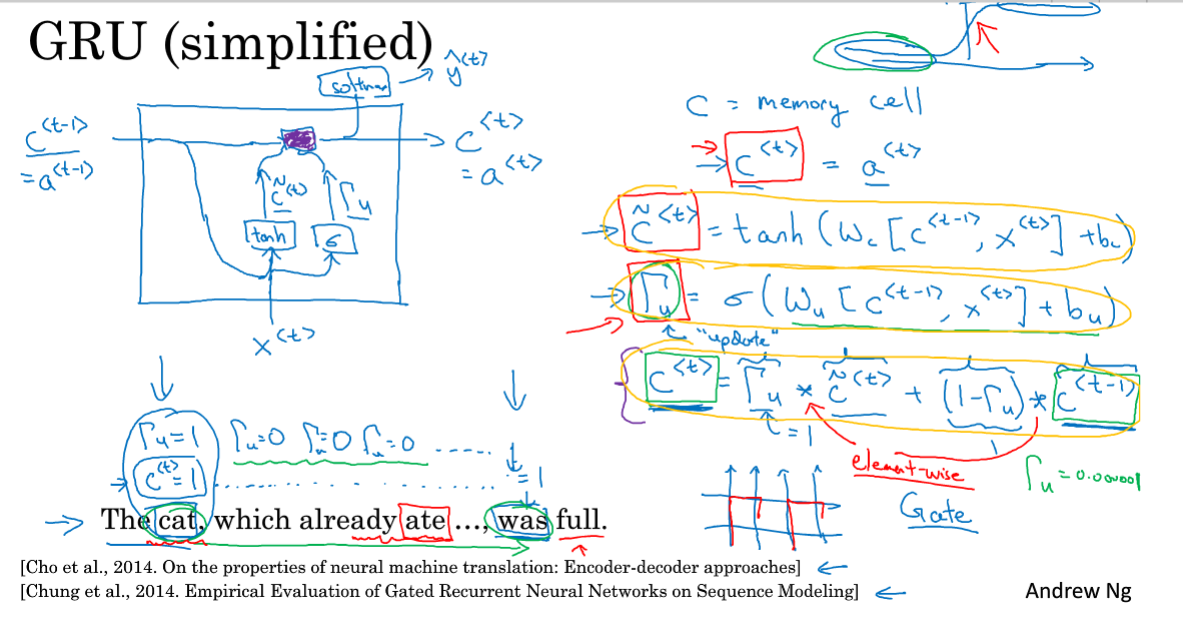 GRU (simplified)
softmax → ŷ^<t>
c^<t-1>
= a^<t-1>
c^<t>
= a^<t>
c̃^<t>
Γu
tanh
σ
x^<t>
C = memory cell
c^<t> = a^<t>
c̃^<t> = tanh (Wc [c^<t-1>, x^<t>] + bc)
Γu = σ (Wu [c^<t-1>, x^<t>] + bu)
"update"
c^<t> = Γu * c̃^<t> + (1-Γu) * c^<t-1>
= 1
element-wise
Γu = 0.000001
Gate
Γu=1 Γu=0 Γu=0 Γu=0 .....
c^<t>=1 ............ = 1
The cat, which already ate ..., was full.
[Cho et al., 2014. On the properties of neural machine translation: Encoder-decoder approaches] ←
[Chung et al., 2014. Empirical Evaluation of Gated Recurrent Neural Networks on Sequence Modeling] ←
Andrew Ng